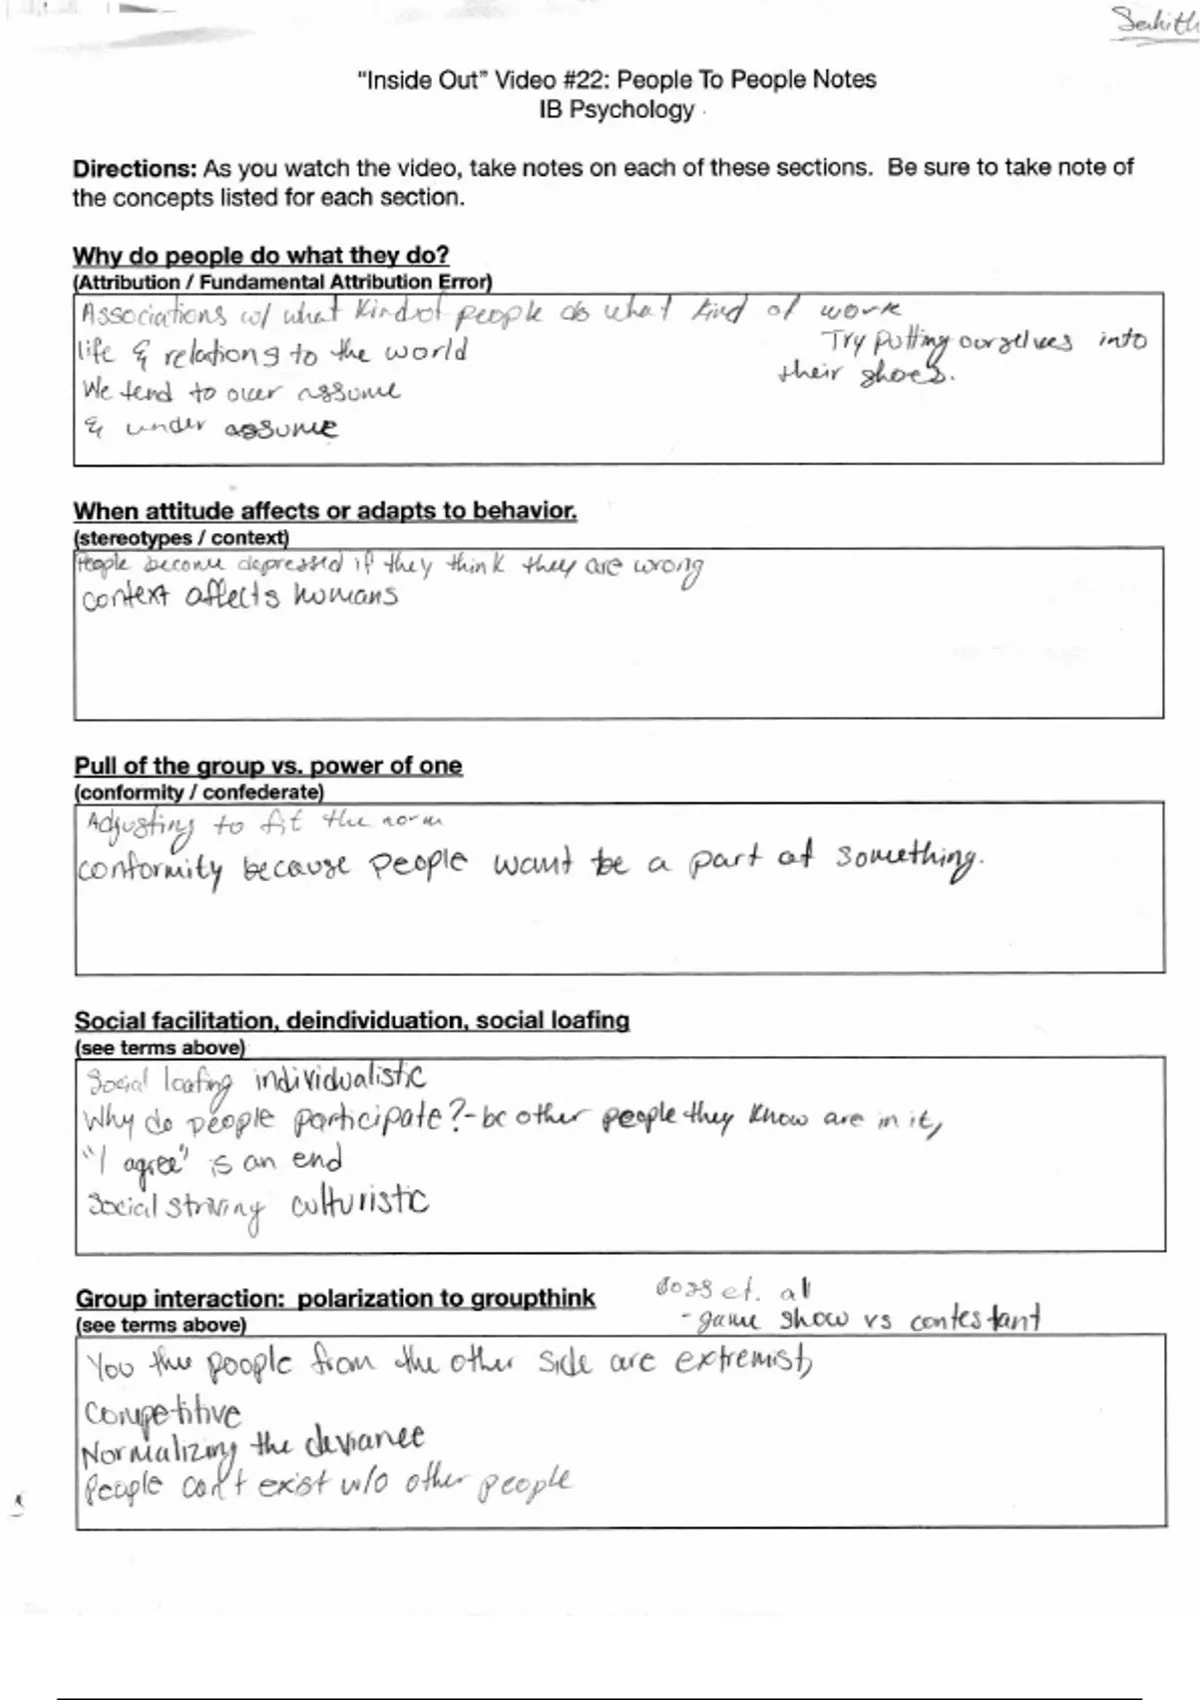 Sahith
"Inside Out" Video #22: People To People Notes
IB Psychology
Directions: As you watch the video, take notes on each of these sections. Be sure to take note of
the concepts listed for each section.
Why do people do what they do?
(Attribution / Fundamental Attribution Error)
Associations w/ what kind of people do what kind of work
life & relations to the world
Try putting ourselves into
their shoes.
We tend to over assume
& under assume
When attitude affects or adapts to behavior.
(stereotypes / context)
People become depressed if they think they are wrong
context affects humans
Pull of the group vs. power of one
(conformity / confederate)
Adjusting to fit the norm
conformity because people want be a part of something.
Social facilitation, deindividuation, social loafing
(see terms above)
Social loafing individualistic
Why do people participate? - bc other people they know are in it,
"I agree" is an end
Social striving culturistic
Group interaction: polarization to groupthink
(see terms above)
et. al
- game show vs contestant
You the poople from the other side are extremist,
Competitive
Normalizing the deviance
People can't exist w/o other people